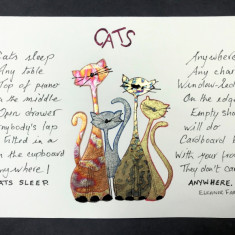 CATS
Cats sleep
Any table
Top of piano
in the middle
Open drawer
Anybody's lap
fitted in a
in the cupboard
Anywhere!
CATS SLEEP.
Anywhere
Any chair
Window-ledge
On the edge
Empty shoe
will do
Cardboard
With your
They don't care
ANYWHERE.
ELEANOR